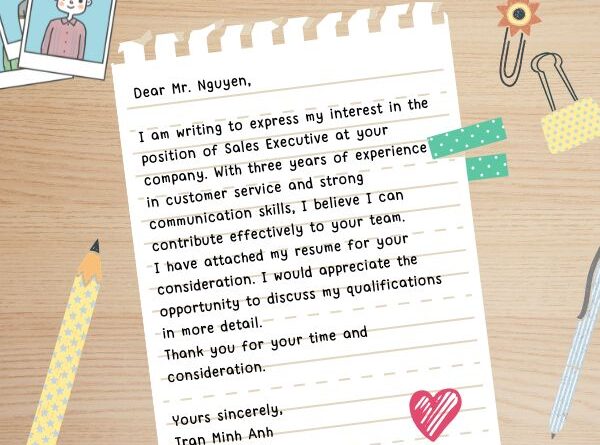 Dear Mr. Nguyen,
I am writing to express my interest in the
position of Sales Executive at your
company. With three years of experience
in customer service and strong
communication skills, I believe I can
contribute effectively to your team.
I have attached my resume for your
consideration. I would appreciate the
opportunity to discuss my qualifications
in more detail.
Thank you for your time and
consideration.
Yours sincerely,
Tran Minh Anh